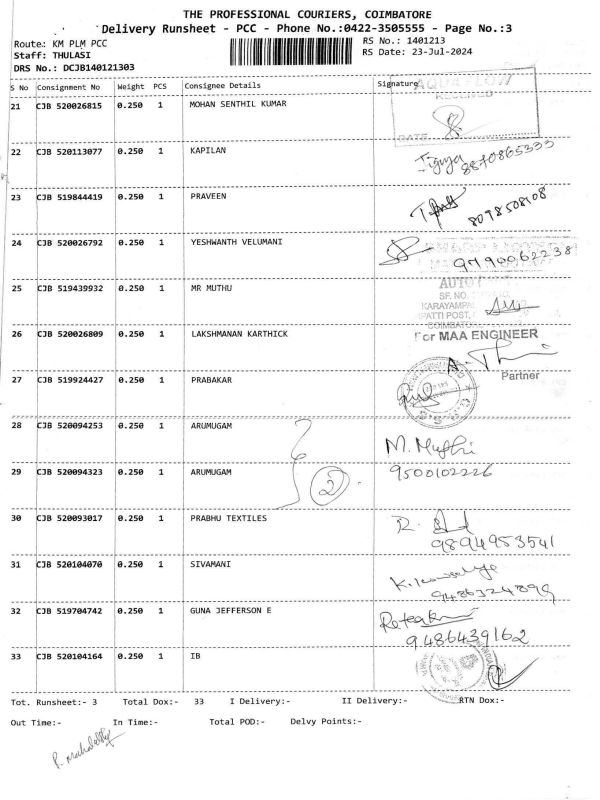 THE PROFESSIONAL COURIERS, COIMBATORE
Delivery Runsheet - PCC - Phone No.:0422-3505555 - Page No.:3
Route: KM PLM PCC
RS No.: 1401213
Staff: THULASI
RS Date: 23-Jul-2024
DRS No.: DCJB140121303
S No Consignment No Weight PCS Consignee Details Signature
AQUA FLOW
RECEIVED
DATE
21 CJB 520026815 0.250 1 MOHAN SENTHIL KUMAR
22 CJB 520113077 0.250 1 KAPILAN
8870865333
23 CJB 519844419 0.250 1 PRAVEEN
8098508108
24 CJB 520026792 0.250 1 YESHWANTH VELUMANI
9790062238
25 CJB 519439932 0.250 1 MR MUTHU
AUTO
SF. NO.
KARAYAMPA
PATTI POST,
COIMBATO
26 CJB 520026809 0.250 1 LAKSHMANAN KARTHICK
For MAA ENGINEER
Partner
27 CJB 519924427 0.250 1 PRABAKAR
28 CJB 520094253 0.250 1 ARUMUGAM
M. Muthu
29 CJB 520094323 0.250 1 ARUMUGAM
2
9500102226
30 CJB 520093017 0.250 1 PRABHU TEXTILES
9894953541
31 CJB 520104070 0.250 1 SIVAMANI
9486324899
32 CJB 519704742 0.250 1 GUNA JEFFERSON E
9486439162
33 CJB 520104164 0.250 1 IB
Tot. Runsheet:- 3 Total Dox:- 33 I Delivery:- II Delivery:- RTN Dox:-
Out Time:- In Time:- Total POD:- Delvy Points:-